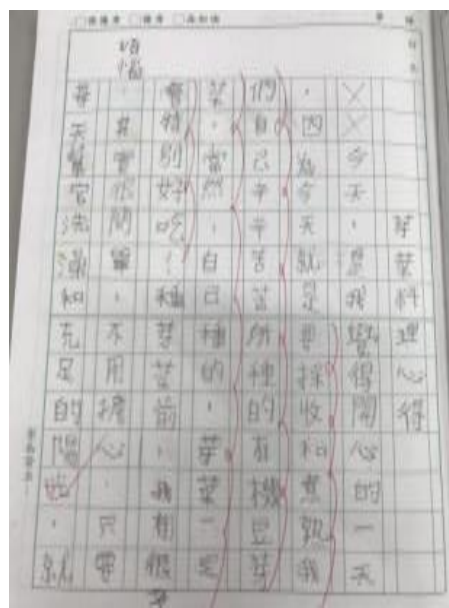 芽菜料理心得
××今天,是我覺得開心的一天
,因為今天就是要採收和煮熟我
們自己辛辛苦苦所種的有機豆芽
菜,當然,自己種的,芽菜一定
會特別好吃!種芽菜前,我有很多
煩惱,其實很簡單,不用擔心,只要
每天幫它洗澡和充足的陽,就